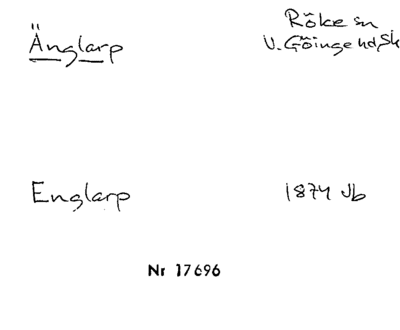 Änglarp
Röke sn
V. Göinge hd, Sk
Englarp
1874 Jb
Nr 17696